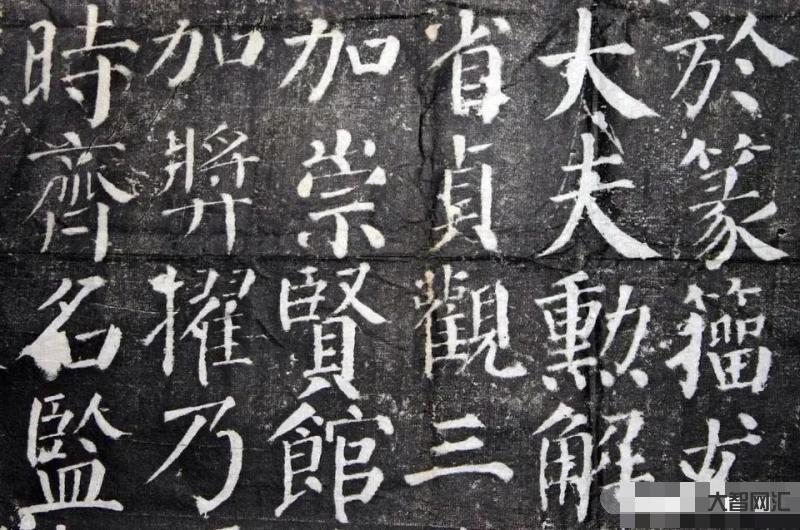 於篆籀尤
大夫勲解
省貞觀三
加崇賢館
加奬擢乃
時齊名監
大智网汇